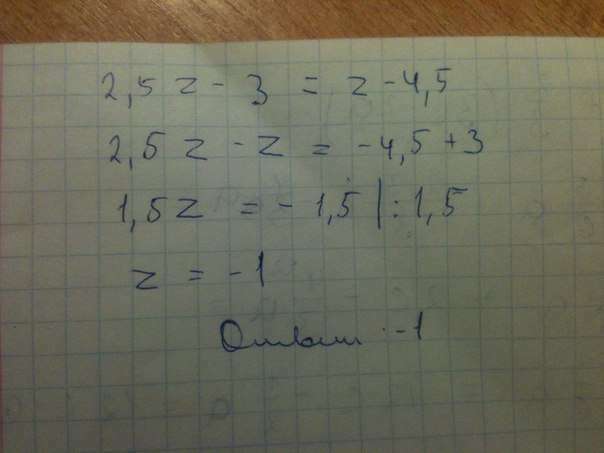 2,5 z - 3 = z - 4,5
2,5 z - z = -4,5 + 3
1,5 z = - 1,5 | : 1,5
z = -1
Ответ: -1